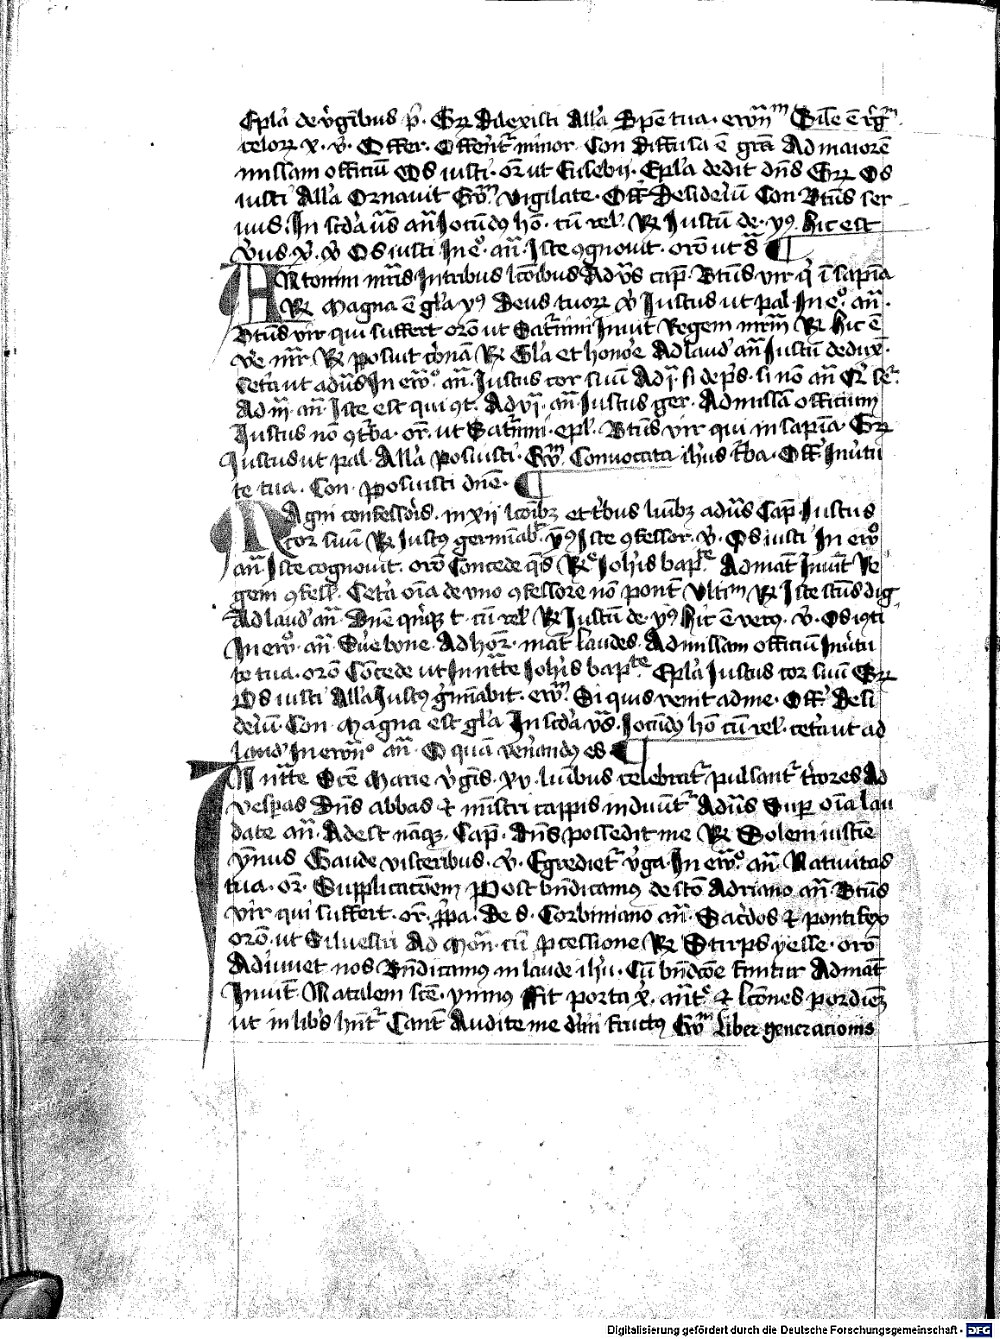 Epl'a de v'gībus p̄. Gr Dilexisti All'a Spē tua. ewnᵐ Sile ē r'gᵐ
celorꝝ x. v̄. Offer. Offerēt' minor. Con Diffusa ē gr̄a Ad maiorē
missam officiū Os iusti. or̄ ut Eusebii. Epl'a dedit dn̄s Gr Os
iusti All'a Ornauit Ew̄ᵐ Vigilate. Off Desideriū Con Bt̄us ser
uus. In scd'a us̄ an̄ Jocūdꝰ hō. cū rel'. R Justū de. yꝰ. hic est
v̄us. x̄. v̄ Os iusti In e°. an̄. Iste ꝯgnouit. orō ut s̄ ¶
Antonini mr̄is In tribus lc̄oibus Ad vs̄ cap̄. Bt̄us vir q' ī sapīa
R Magna ē gl'a yꝰ Deus tuorꝝ v̄ Justus ut pal In e°. an̄.
Bt̄us vir qui suffert orō ut Sat'nini Inuit Regem mr̄m R hic ē
v'e mr̄r R Posuit cōnā R Gl'a et honoe Ad laud' an̄ Justū dedux̄.
Cet'a ut ad us̄ In ew̄°. an̄. Justus cor suū Ad j̄. si de p's. si nō an̄
Ad iij. an̄. Iste est qui ꝯt. Ad vj. an̄ Justus ger. Ad missā officium
Justus nō ꝯt'ba. or̄. ut Sat'nini. epl'. Bt̄us vir qui in sapīa. Gr
Justus ut pal. All'a Posuisti. Ew̄ Conuocata ih'us t'ba. Off' Inuēi
te tua. Con. Posuisti dn̄e. ¶
Magni confessoris. in xii lc̄oibꝫ et t'bus luībꝫ ad us̄ Cap̄ Justus
cor suū R Justꝰ germīab'. yꝰ Iste ꝯfessor. v̄. Os iusti In ew°
an̄ Iste cognouit. orō Concede q's R' Joh'is bap'ᵗᵉ. Ad mat̄ Inuit̄ Re
gem ꝯfess. Cet'a oīa de vno ꝯfessore nō pont̄ Vltiᵐ R Iste sc̄us dig
Ad laud' an̄. Dn̄e qnq3 t. cū rel' R Justū de. yꝰ hic ē verꝰ. v̄. Os iusti
In ew°. an̄. Euge bone. Ad hor̄. mat̄ laudes. Ad missam officiū Inueni
te tua. orō Cōcede ut In nt̄te Joh'is bap'ᵗᵉ. Epl'a Justus cor suū Gr
Os iusti All'a Justꝰ g'minabit. ew̄ᵐ. Si quis venit ad me. Off' Desi
deriū Con. Magna est gl'a In scd'a us̄. Jocūdꝰ hō cū rel'. cet'a ut ad
laud' In ewn°. an̄. O quā ven'andꝰ es ¶
In nt̄te Sc̄e Marie v'gīs. xv. luībus celebrat' pulsant' t'rores Ad
vesp̄as Dn̄s abbas et mīstri cappis induūt' Ad us̄ Sup̄ oīa lau
date an̄. Adest nāq3. Cap̄. dn̄s possedit me R Solem iusticie
ymnus Gaude visceribus. v̄. Egrediet' v'ga. In ew̄°. an̄. Natiuitas
tua. or̄. Supplicacōem Post bn̄dicamꝰ de scō Adriano an̄. Bt̄us
vir qui suffert. or̄. p̄pa. De s. Corbiniano an̄. Sac'dos et pontifex
orō. ut Siluestri Ad Mon̄. cū p̄cessione R Stirps yesse. orō
Adiuuet nos Bn̄dicamꝰ in laude ih'u. Cū bn̄dc̄oe finitur Ad mat̄
Inuit̄ Natalem sc̄e. ymnꝰ Fit porta x̄. an̄t' et lc̄ones per ordīem
ut in lib's hn̄t' Cant̄ Audite me diuī fructꝰ Ew̄ᵐ Liber generacionis
Digitalisierung gefördert durch die Deutsche Forschungsgemeinschaft - DFG